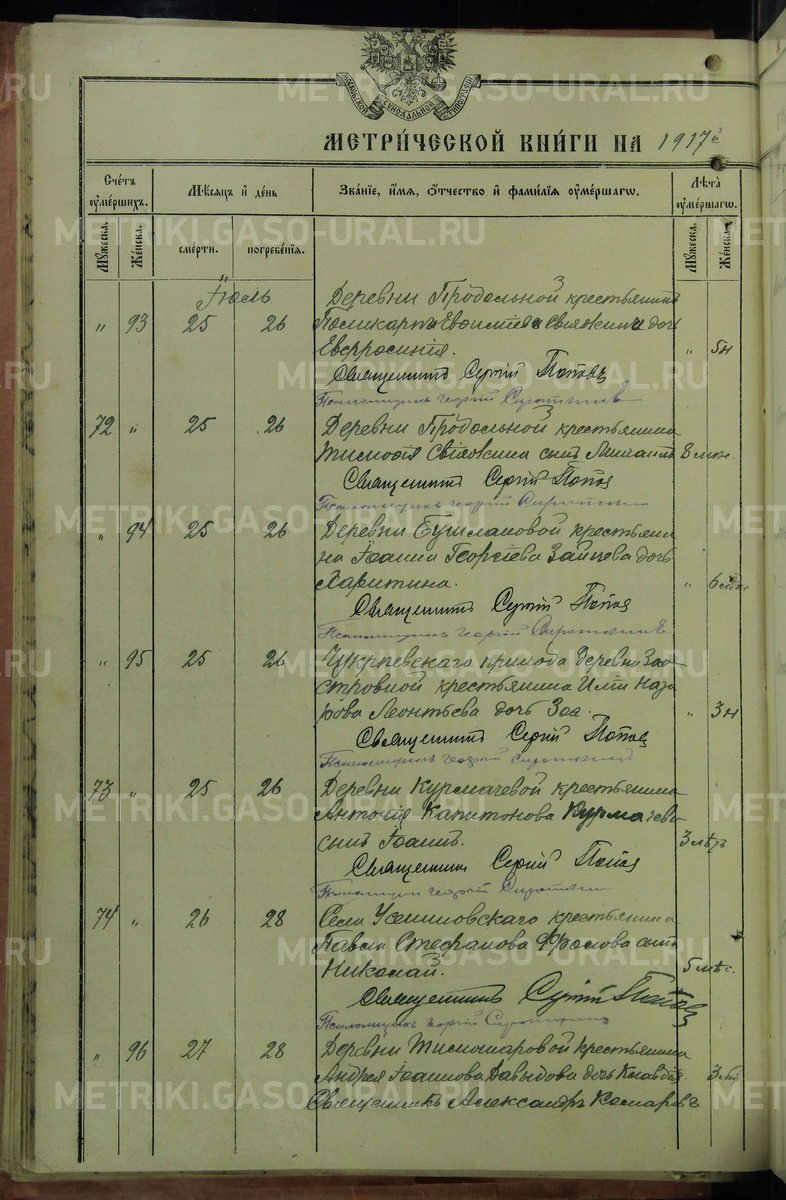 МОСКОВСКОЙ СѴНОДАЛЬНОЙ ТИПОГРАФІИ
МЕТРИ́ЧЕСКОЙ КНИ́ГИ НА 1917й
Счётъ ᲂу҆ме́ршихъ. Мѣ́сяцъ и҆ де́нь Зва́нїе, и҆́мѧ, ѻ҆́тчество и҆ фами́лїѧ ᲂу҆ме́ршагѡ. Лѣ̑та ᲂу҆ме́ршагѡ.
Мꙋ́жеска. Же́нска. сме́рти. погребе́нїѧ. Мꙋ́жеска. Же́нска.
Іюль Деревни Продольной крестьянина
" 93 25 26 Поликарпа Евдокимова дочь
Евфросинія. " 5н
Священникъ Сергій Поповъ
Псаломщикъ Георгій Сироткинъ
72 " 25 26 Деревни Продольной крестьянина
Тимофея сынъ 8 мѣс.
Священникъ Сергій Попов
Псаломщикъ Георгій Сироткин
" 94 25 26 Деревни крестьяни
на Іоанна Георгіева Зайцева дочь
Харитина. " 6 мѣс
Священникъ Сергій Попов
Псаломщикъ Георгій Сироткинъ
" 95 25 26 Чукреевскаго прихода деревни Зао
стровной крестьянина Иліи Наза
рова Леонтьева дочь Зоа. " 3н
Священникъ Сергій Попов
Псаломщикъ Георгій Сироткин
73 " 25 26 Деревни Курмачевой крестьянина
Антонія Капитонова Курмачева
сынъ Іоаннъ. 3 лѣтъ
Священник Сергій Попов
Псаломщик Георгій Сироткин
74 " 26 28 Села Усениновскаго крестьянина
Павла Стефанова Фролова сынъ
Николай. 5 мѣс.
Священникъ Сергій Поповъ
Псаломщикъ Георгій Сироткинъ
" 96 27 28 Деревни крестьянина
Андрея Іоаннова Давыдова дочь Клавдія 3
Священникъ Александръ Комаровъ
METRIKI.GASO-URAL.RU